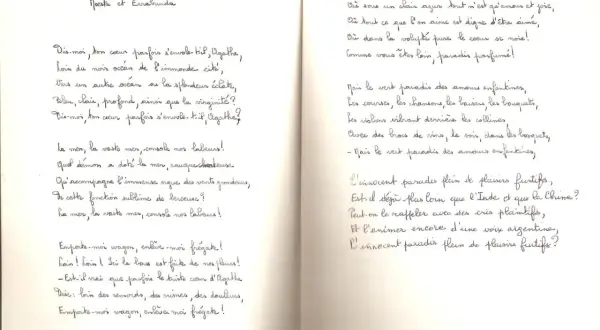 Moesta et Errabunda
Dis-moi, ton cœur parfois s'envole-t-il, Agathe,
Loin du noir océan de l'immonde cité,
Vers un autre océan où la splendeur éclate,
Bleu, clair, profond, ainsi que la virginité ?
Dis-moi, ton cœur parfois s'envole-t-il, Agathe ?
La mer, la vaste mer, console nos labeurs !
Quel démon a doté la mer, rauque chanteuse
Qu'accompagne l'immense orgue des vents grondeurs,
De cette fonction sublime de berceuse ?
La mer, la vaste mer, console nos labeurs !
Emporte-moi wagon, enlève-moi frégate !
Loin ! Loin ! Ici la boue est faite de nos pleurs !
- Est-il vrai que parfois le triste cœur d'Agathe
Dise : loin des remords, des crimes, des douleurs,
Emporte-moi wagon, enlève-moi frégate !
Où sous un clair azur tout n'est qu'amour et joie,
Où tout ce que l'on aime est digne d'être aimé,
Où dans la volupté pure le cœur se noie !
Comme vous êtes loin, paradis parfumé !
Mais le vert paradis des amours enfantines,
Les courses, les chansons, les baisers, les bouquets,
Les violons vibrant derrière les collines,
Avec des brocs de vins, le soir, dans les bosquets,
- Mais le vert paradis des amours enfantines,
L'innocent paradis plein de plaisirs furtifs,
Est-il déjà plus loin que l'Inde et que la Chine ?
Peut-on le rappeler avec des cris plaintifs,
Et l'animer encore d'une voix argentine,
L'innocent paradis plein de plaisirs furtifs ?